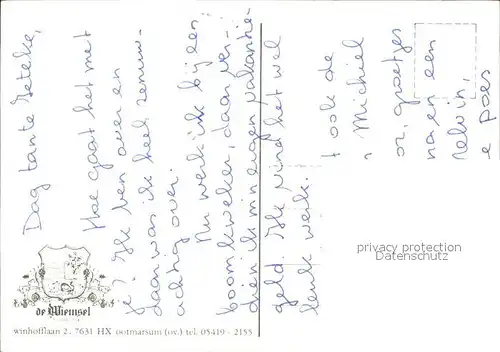 Dag tante Leteke,
Hoe gaat het met
je? Ik ben over en
daar was ik heel zenuw-
achtig over.
Nu werk ik bij een
boomkweker, daar ver-
dien ik mijn eigen vakantie-
geld. Ik vind het wel
leuk werk.
ook de
Michiel
or, groetjes
na en een
Melvin,
e poes
de Wiemsel
winhofflaan 2, 7631 HX ootmarsum (ov.) tel. 05419 - 2155
privacy protection
Datenschutz